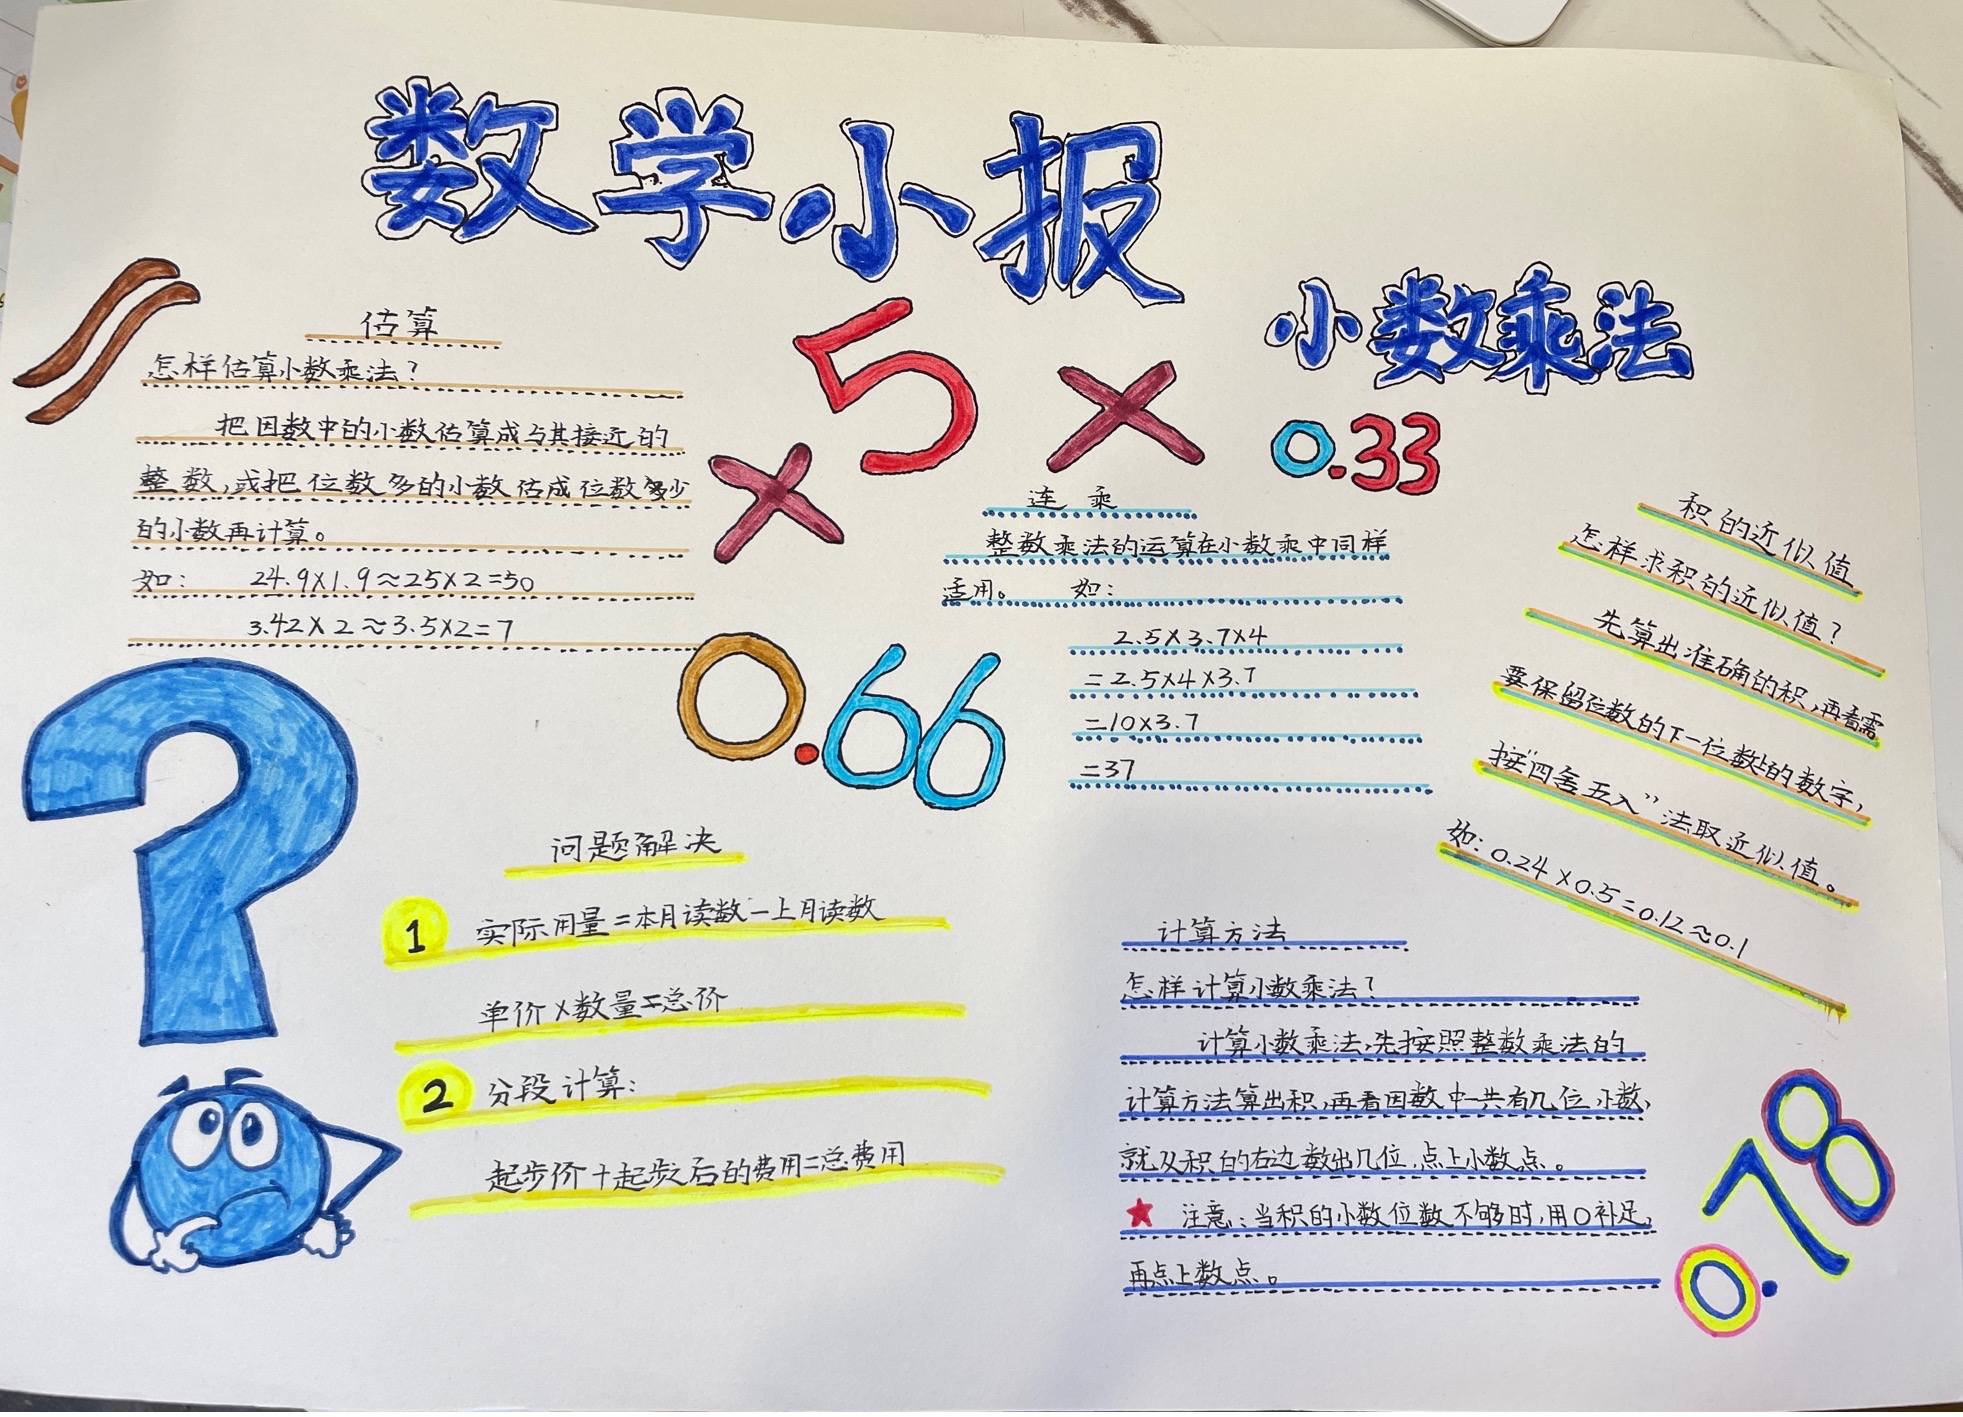 数学小报
小数乘法
估算
怎样估算小数乘法？
把因数中的小数估算成与其接近的
整数，或把位数多的小数估成位数少
的小数再计算。
如： 24.9×1.9≈25×2=50
3.42×2≈3.5×2=7
×5×
0.33
0.66
连乘
整数乘法的运算在小数乘中同样
适用。 如：
2.5×3.7×4
=2.5×4×3.7
=10×3.7
=37
积的近似值
怎样求积的近似值？
先算出准确的积，再看需
要保留位数的下一位数上的数字，
按“四舍五入”法取近似值。
如：0.24×0.5=0.12≈0.1
?
问题解决
1 实际用量=本月读数-上月读数
单价×数量=总价
2 分段计算：
起步价+起步之后的费用=总费用
计算方法
怎样计算小数乘法？
计算小数乘法，先按照整数乘法的
计算方法算出积，再看因数中一共有几位小数，
就从积的右边数出几位，点上小数点。
★ 注意：当积的小数位数不够时，用0补足，
再点上数点。
0.78